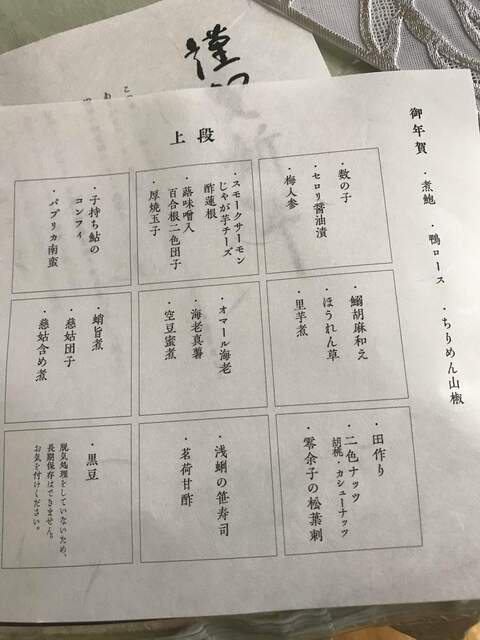 謹
御年賀 ・煮鮑 ・鴨ロース ・ちりめん山椒
上段
・数の子
・セロリ醤油漬
・梅人参
・スモークサーモン
じゃが芋チーズ
酢蓮根
・蕗味噌入
百合根二色団子
・厚焼玉子
・子持ち鮎の
コンフィ
・パプリカ南蛮
・鰯胡麻和え
・ほうれん草
・里芋煮
・オマール海老
・海老真薯
・空豆蜜煮
・蛸旨煮
・慈姑団子
・慈姑含め煮
・田作り
・二色ナッツ
胡桃・カシューナッツ
・零余子の松葉刺
・浅蜊の笹寿司
・茗荷甘酢
・黒豆
脱気処理をしていないため、
長期保存はできません。
お気を付けください。